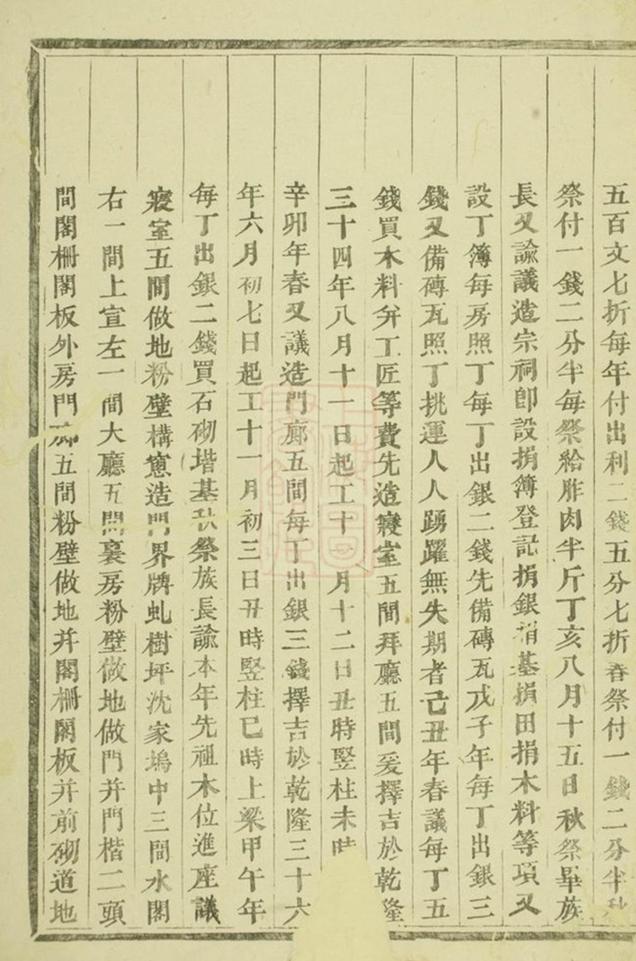 五百文七折每年付出利二錢五分七折春祭付一錢二分半秋
祭付一錢二分半每祭給胙肉半斤丁亥八月十五日秋祭畢族
長又諭議造宗祠即設捐簿登記捐銀捐基捐田捐木料等項又
設丁簿每房照丁每丁出銀二錢先備磚瓦戊子年每丁出銀三
錢又備磚瓦照丁挑運人人踴躍無失期者己丑年春議每丁五
錢買木料弁工匠等費先造寢室五間拜廳五間爰擇吉於乾隆
三十四年八月十一日起工十月十二日丑時竪柱未時
辛卯年春又議造門廊五間每丁出銀三錢擇吉於乾隆三十六
年六月初七日起工十一月初三日丑時竪柱巳時上梁甲午年
每丁出銀二錢買石砌堦基秋祭族長諭本年先祖木位進座議
寢室五間做地粉壁構窻造門界牌虬樹坪沈家塢中三間水閣
右一間上宣左一間大廳五間裏房粉壁做地做門并門楷二頭
間閣柵閣板外房門廊五間粉壁做地并閣柵閣板并前砌道地